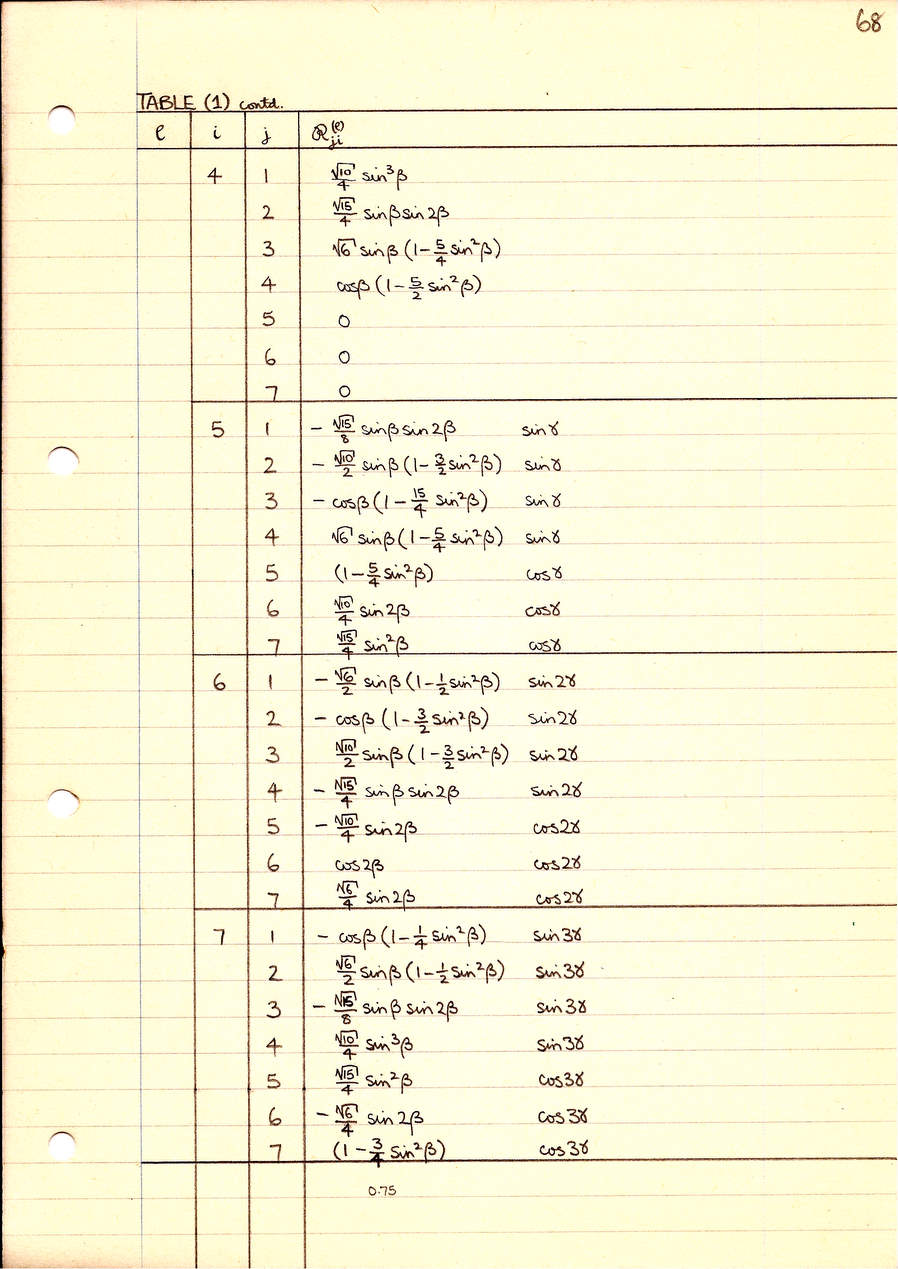 68
TABLE (1) contd.
ℓ i j ℛ_ji^(ℓ)
4 1 √10/4 sin³β
2 √15/4 sinβ sin 2β
3 √6 sinβ (1 − 5/4 sin²β)
4 cosβ (1 − 5/2 sin²β)
5 0
6 0
7 0
5 1 − √15/8 sinβ sin 2β sin γ
2 − √10/2 sinβ (1 − 3/2 sin²β) sin γ
3 − cosβ (1 − 15/4 sin²β) sin γ
4 √6 sinβ (1 − 5/4 sin²β) sin γ
5 (1 − 5/4 sin²β) cos γ
6 √10/4 sin 2β cos γ
7 √15/4 sin²β cos γ
6 1 − √6/2 sinβ (1 − 1/2 sin²β) sin 2γ
2 − cosβ (1 − 3/2 sin²β) sin 2γ
3 √10/2 sinβ (1 − 3/2 sin²β) sin 2γ
4 − √15/4 sinβ sin 2β sin 2γ
5 − √10/4 sin 2β cos 2γ
6 cos 2β cos 2γ
7 √6/4 sin 2β cos 2γ
7 1 − cosβ (1 − 1/4 sin²β) sin 3γ
2 √6/2 sinβ (1 − 1/2 sin²β) sin 3γ
3 − √15/8 sinβ sin 2β sin 3γ
4 √10/4 sin³β sin 3γ
5 √15/4 sin²β cos 3γ
6 − √6/4 sin 2β cos 3γ
7 (1 − 3/4 sin²β) cos 3γ
0.75